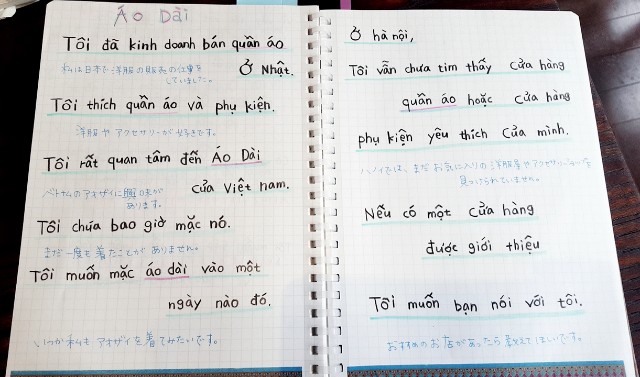 Áo Dài
Tôi đã kinh doanh bán quần áo
ở Nhật.
私は日本で洋服の販売の仕事を
していました。
Tôi thích quần áo và phụ kiện.
洋服やアクセサリーが好きです。
Tôi rất quan tâm đến Áo Dài
của Việt nam.
ベトナムのアオザイに興味が
あります。
Tôi chía bao giờ mặc nó.
まだ一度も着たことがありません。
Tôi muốn mặc áo dài vào một
ngày nào đó.
いつか私もアオザイを着てみたいです。
Ở hà nội,
Tôi vẫn chưa tim thấy cửa hàng
quần áo hoặc cửa hàng
phụ kiện yêu thích của mình.
ハノイでは、まだお気に入りの洋服屋やアクセサリー
見つけられていません。
Nếu có một cửa hàng
được giới thiệu
Tôi muốn bạn nói với tôi.
おすすめのお店があったら教えてほしいです。